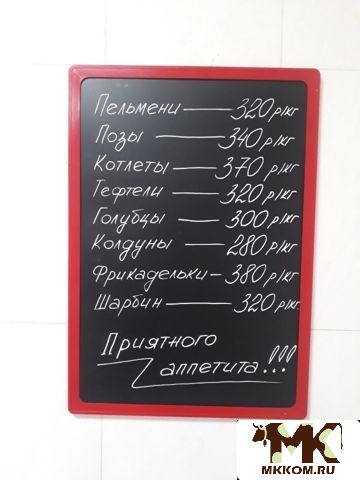 Пельмени — 320 р/кг
Позы — 340 р/кг
Котлеты — 370 р/кг
Тефтели — 320 р/кг
Голубцы — 300 р/кг
Колдуны — 280 р/кг
Фрикадельки - 380 р/кг
Шарбин — 320 р/кг
Приятного
аппетита!!!
МК
MKKOM.RU